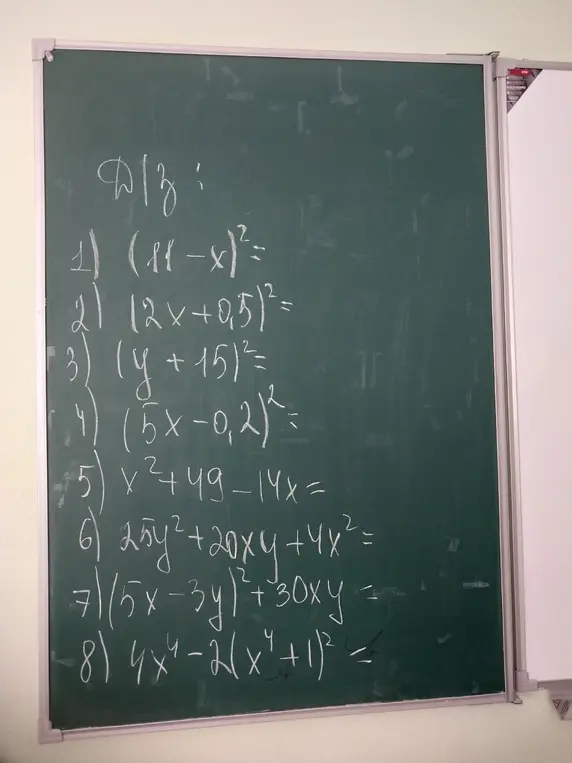 Д/з:
1) (11 - x)²=
2) (2x + 0,5)²=
3) (y + 15)²=
4) (5x - 0,2)²=
5) x² + 49 - 14x =
6) 25y² + 20xy + 4x² =
7) (5x - 3y)² + 30xy =
8) 4x⁴ - 2(x⁴ + 1)² =